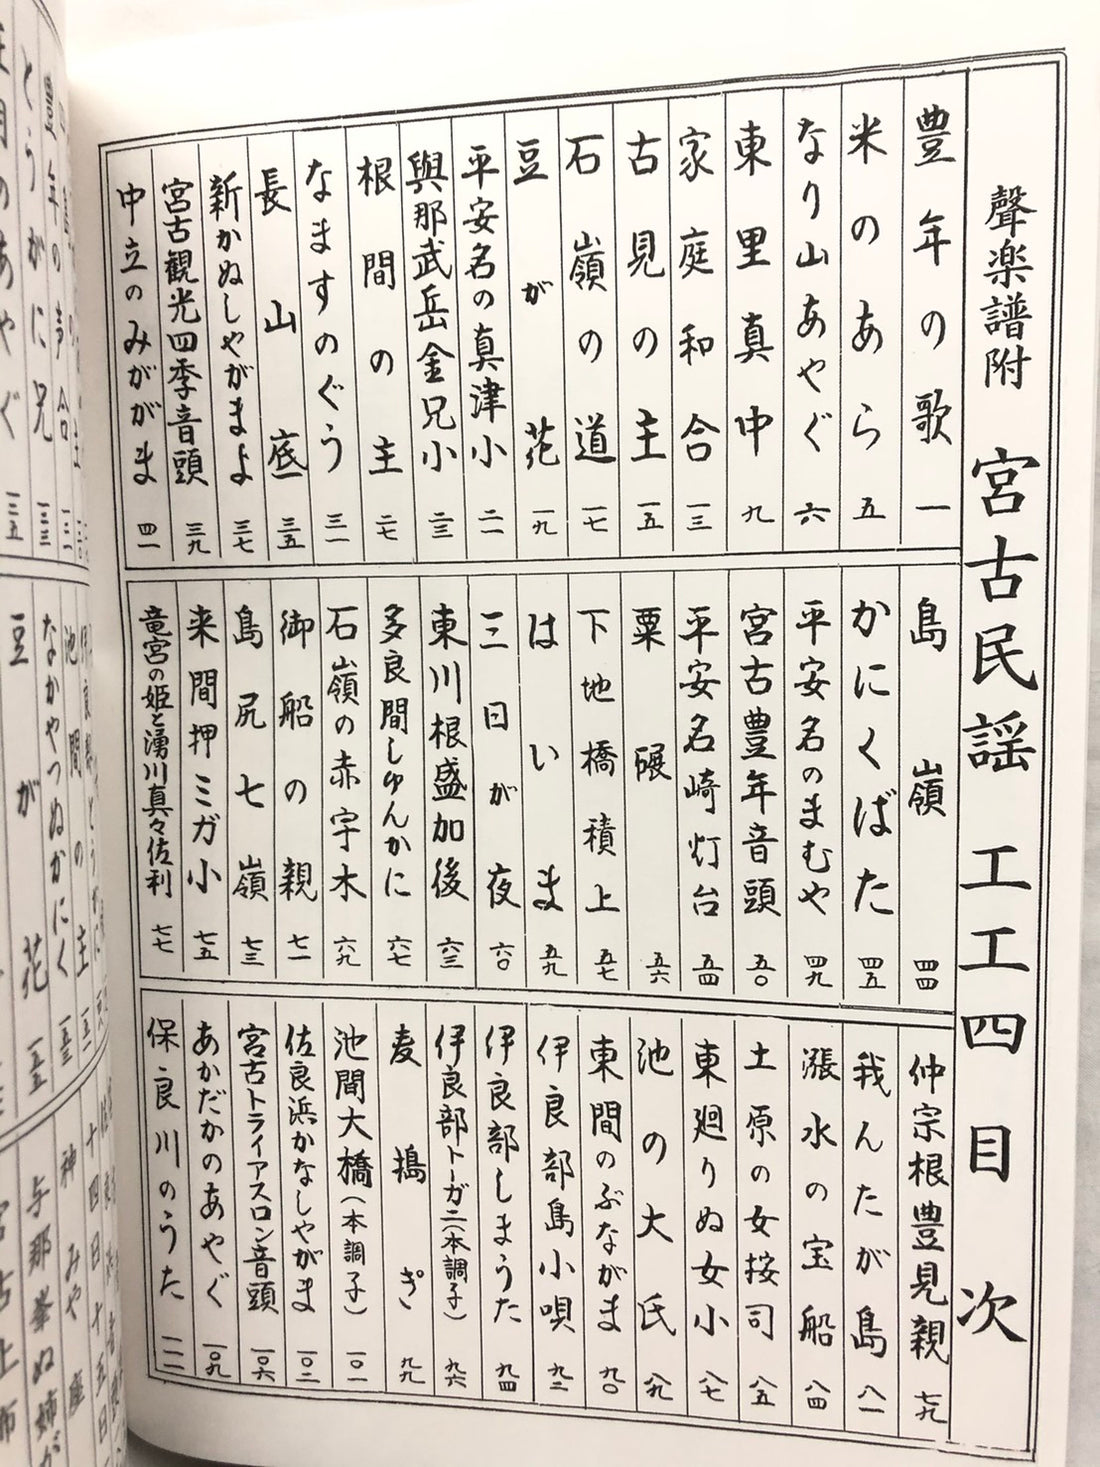 聲楽譜附 宮古民謡 工工四 目次
豊年の歌 一
米のあら 五
なり山あやぐ 六
東里真中 九
家庭和合 一三
古見の主 一五
石嶺の道 一七
豆が花 一九
平安名の真津小 二一
與那武岳金兄小 二三
根間の主 二七
なますのぐう 三一
長山底 三五
新かぬしゃがまよ 三七
宮古観光四季音頭 三九
中立のみががま 四一
島嶺 四四
かにくばた 四五
平安名のまむや 四九
宮古豊年音頭 五〇
平安名崎灯台 五四
粟碾 五六
下地橋積上 五七
はいま 五九
三日が夜 六〇
東川根盛加後 六三
多良間しゅんかに 六七
石嶺の赤宇木 六九
御船の親 七一
島尻七嶺 七三
来間押ミガ小 七五
竜宮の姫と湧川真々佐利 七七
仲宗根豊見親 七九
我んたが島 八一
漲水の宝船 八四
土原の女按司 八五
東廻りぬ女小 八七
池の大氏 八九
東間のぶながま 九〇
伊良部島小唄 九二
伊良部しまうた 九四
伊良部トーガニ(本調子) 九六
麦搗ぎ 九九
池間大橋(本調子) 一〇一
佐良浜かなしゃがま 一〇二
宮古トライアスロン音頭 一〇六
あかだかのあやぐ 一〇九
保良川のうた 一一一